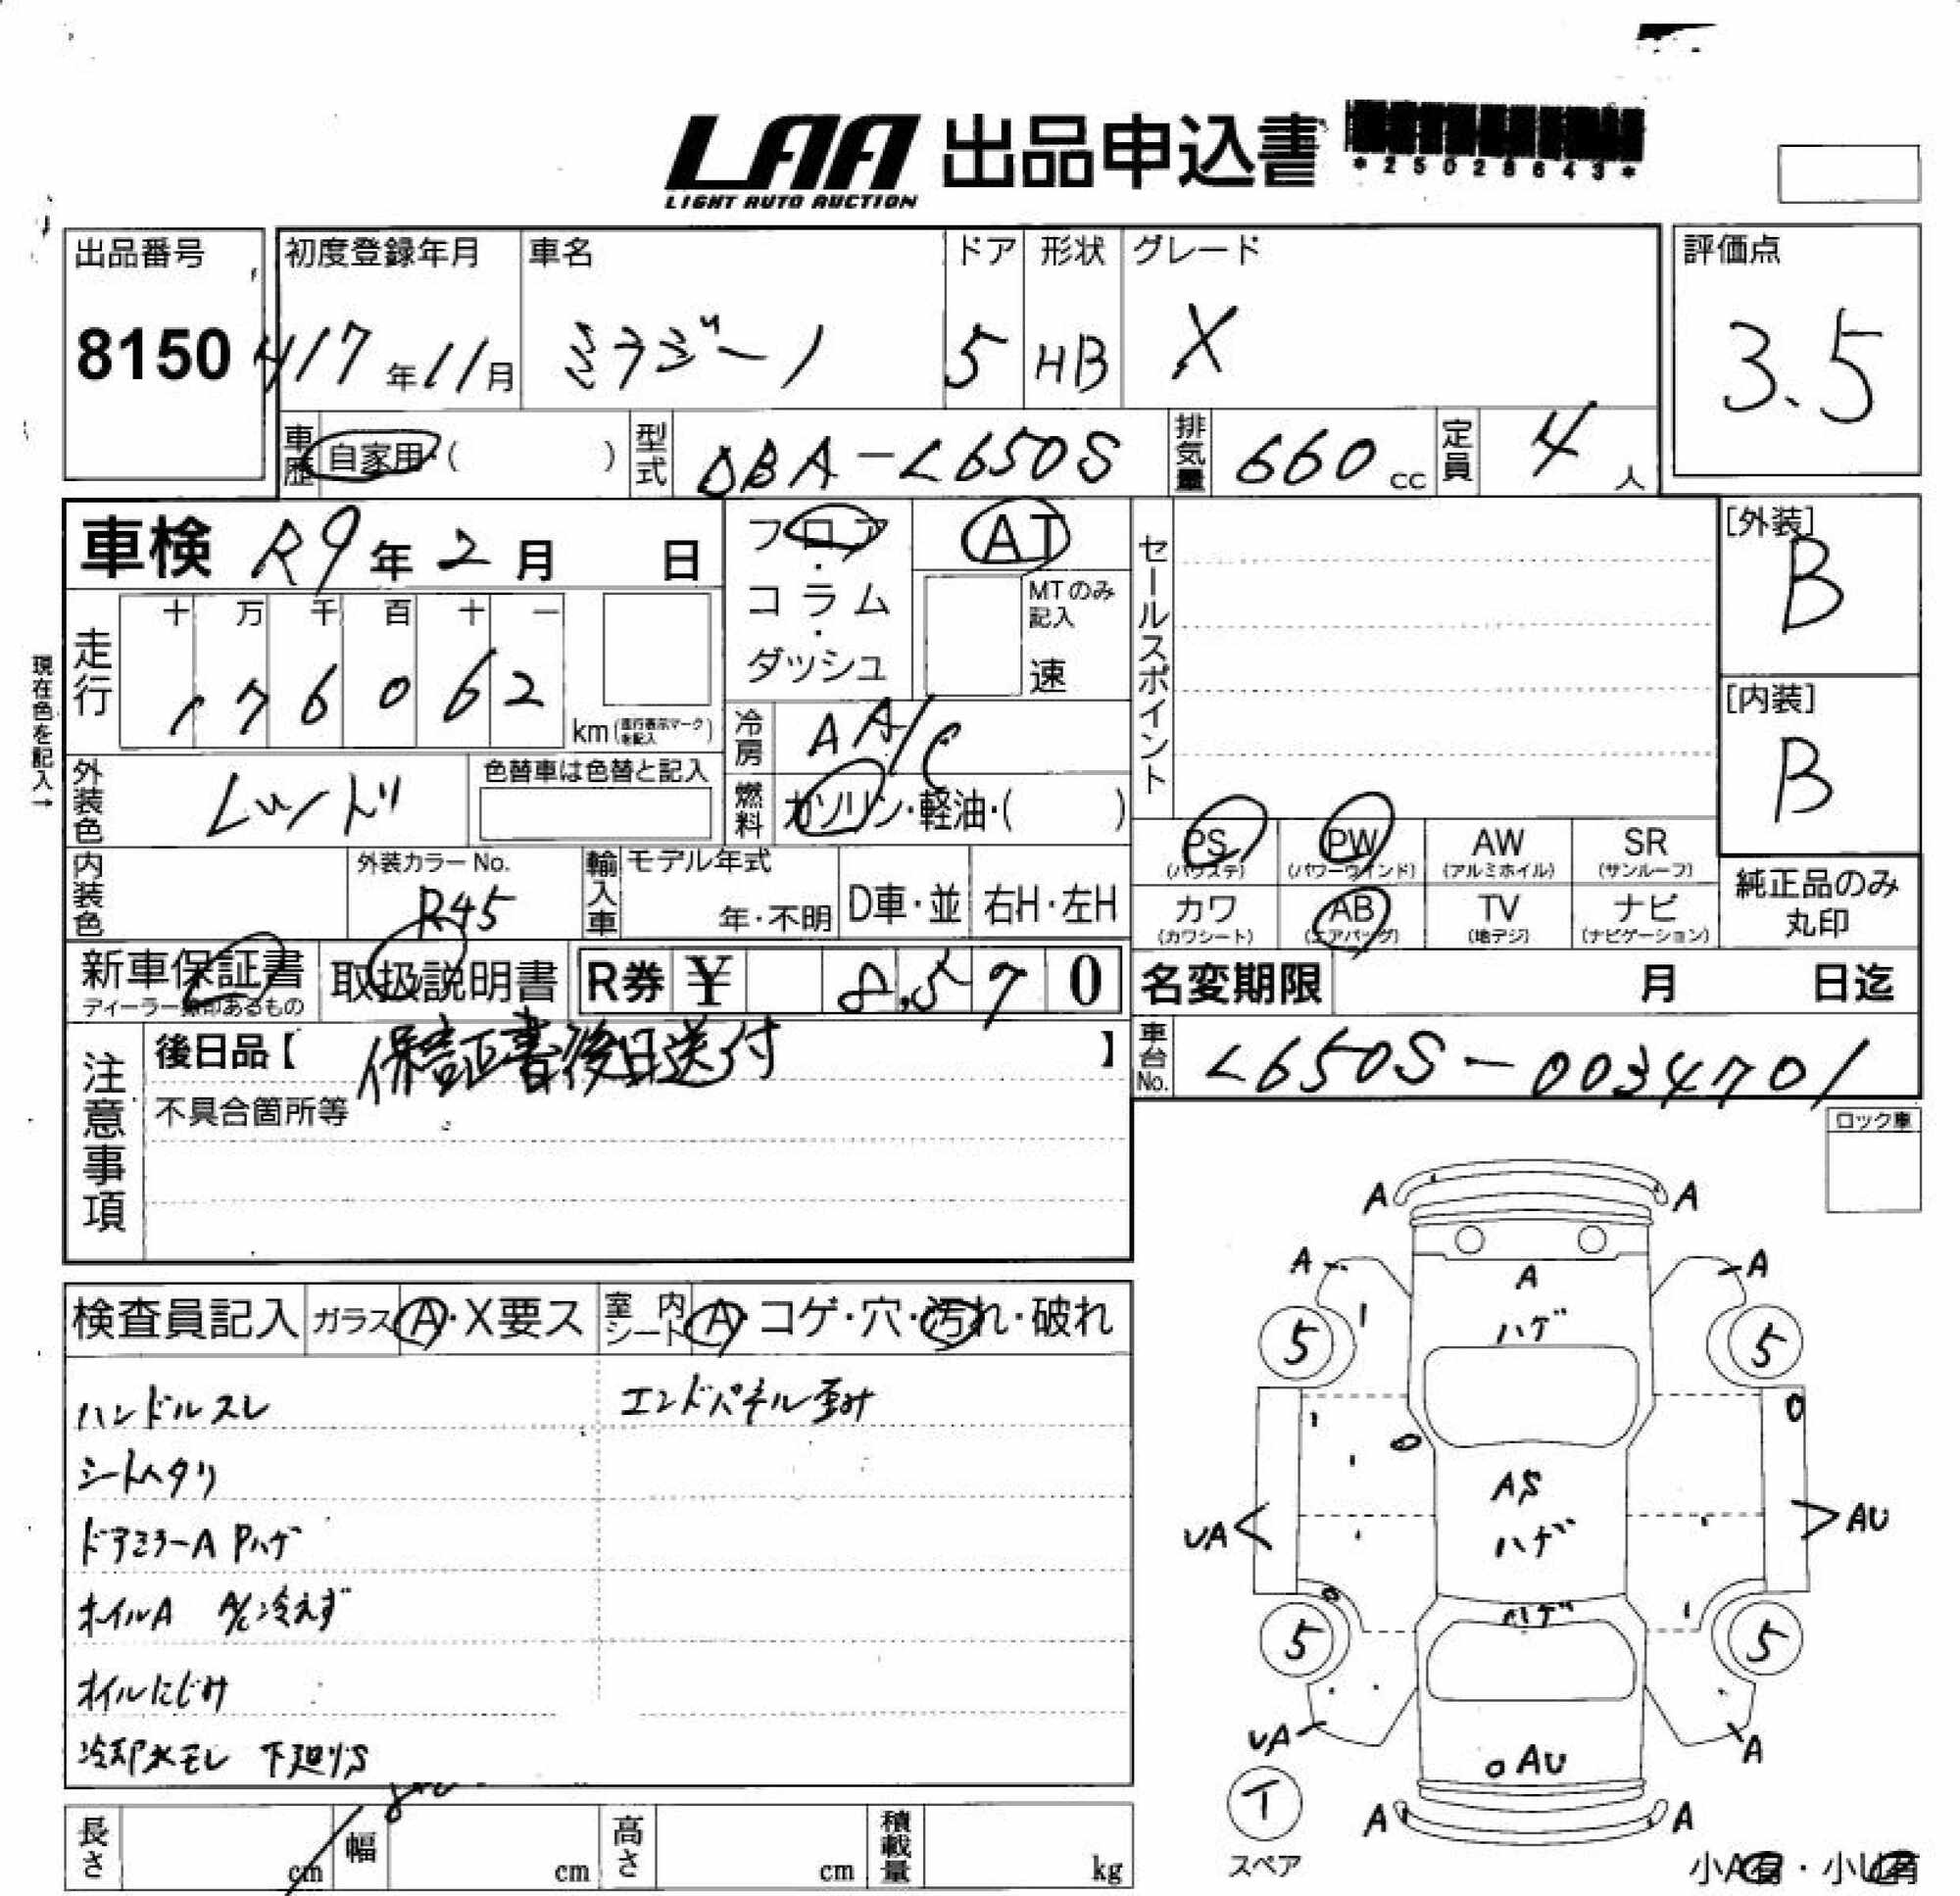 LAA 出品申込書
LIGHT AUTO AUCTION
*25028643*
出品番号
8150
初度登録年月
H17年11月
車名
ミラジーノ
ドア
5
形状
HB
グレード
X
評価点
3.5
車歴 自家用・( )
型式 DBA-L650S
排気量 660 cc
定員 4 人
車検 R9年2月 日
フロア・コラム・ダッシュ
AT
MTのみ記入
速
セールスポイント
[外装]
B
[内装]
B
現在色を記入→
走行
十 万 千 百 十 一
1 7 6 0 6 2
km (走行表示マークを記入)
冷房 AA/C
燃料 ガソリン・軽油・( )
外装色 レッド
色替車は色替と記入
内装色
外装カラーNo.
R45
輸入車
モデル年式
年・不明
D車・並
右H・左H
PS (パワステ)
PW (パワーウインド)
AW (アルミホイル)
SR (サンルーフ)
カワ (カワシート)
AB (エアバッグ)
TV (地デジ)
ナビ (ナビゲーション)
純正品のみ
丸印
新車保証書
ディーラー無印あるもの
取扱説明書
R券 ¥ 8,570
名変期限 月 日迄
注意事項
後日品【 保証書後日送付 】
不具合箇所等
車台No. L650S-0034701
ロック車
検査員記入
ガラス A・X要ス
室内シート A・コゲ・穴・汚れ・破れ
ハンドルスレ
エンドパネル歪み
シートヘタリ
ドアミラーA Pハゲ
ホイルA A/C冷えず
オイルにじみ
冷却水モレ 下廻りS
長さ cm
幅 cm
高さ cm
積載量 kg
A A
A A
A
ハゲ
5 5
AS
ハゲ
UA AU
ハゲ
5 5
UA A
AU
T
スペア
A A
小A有・小U有